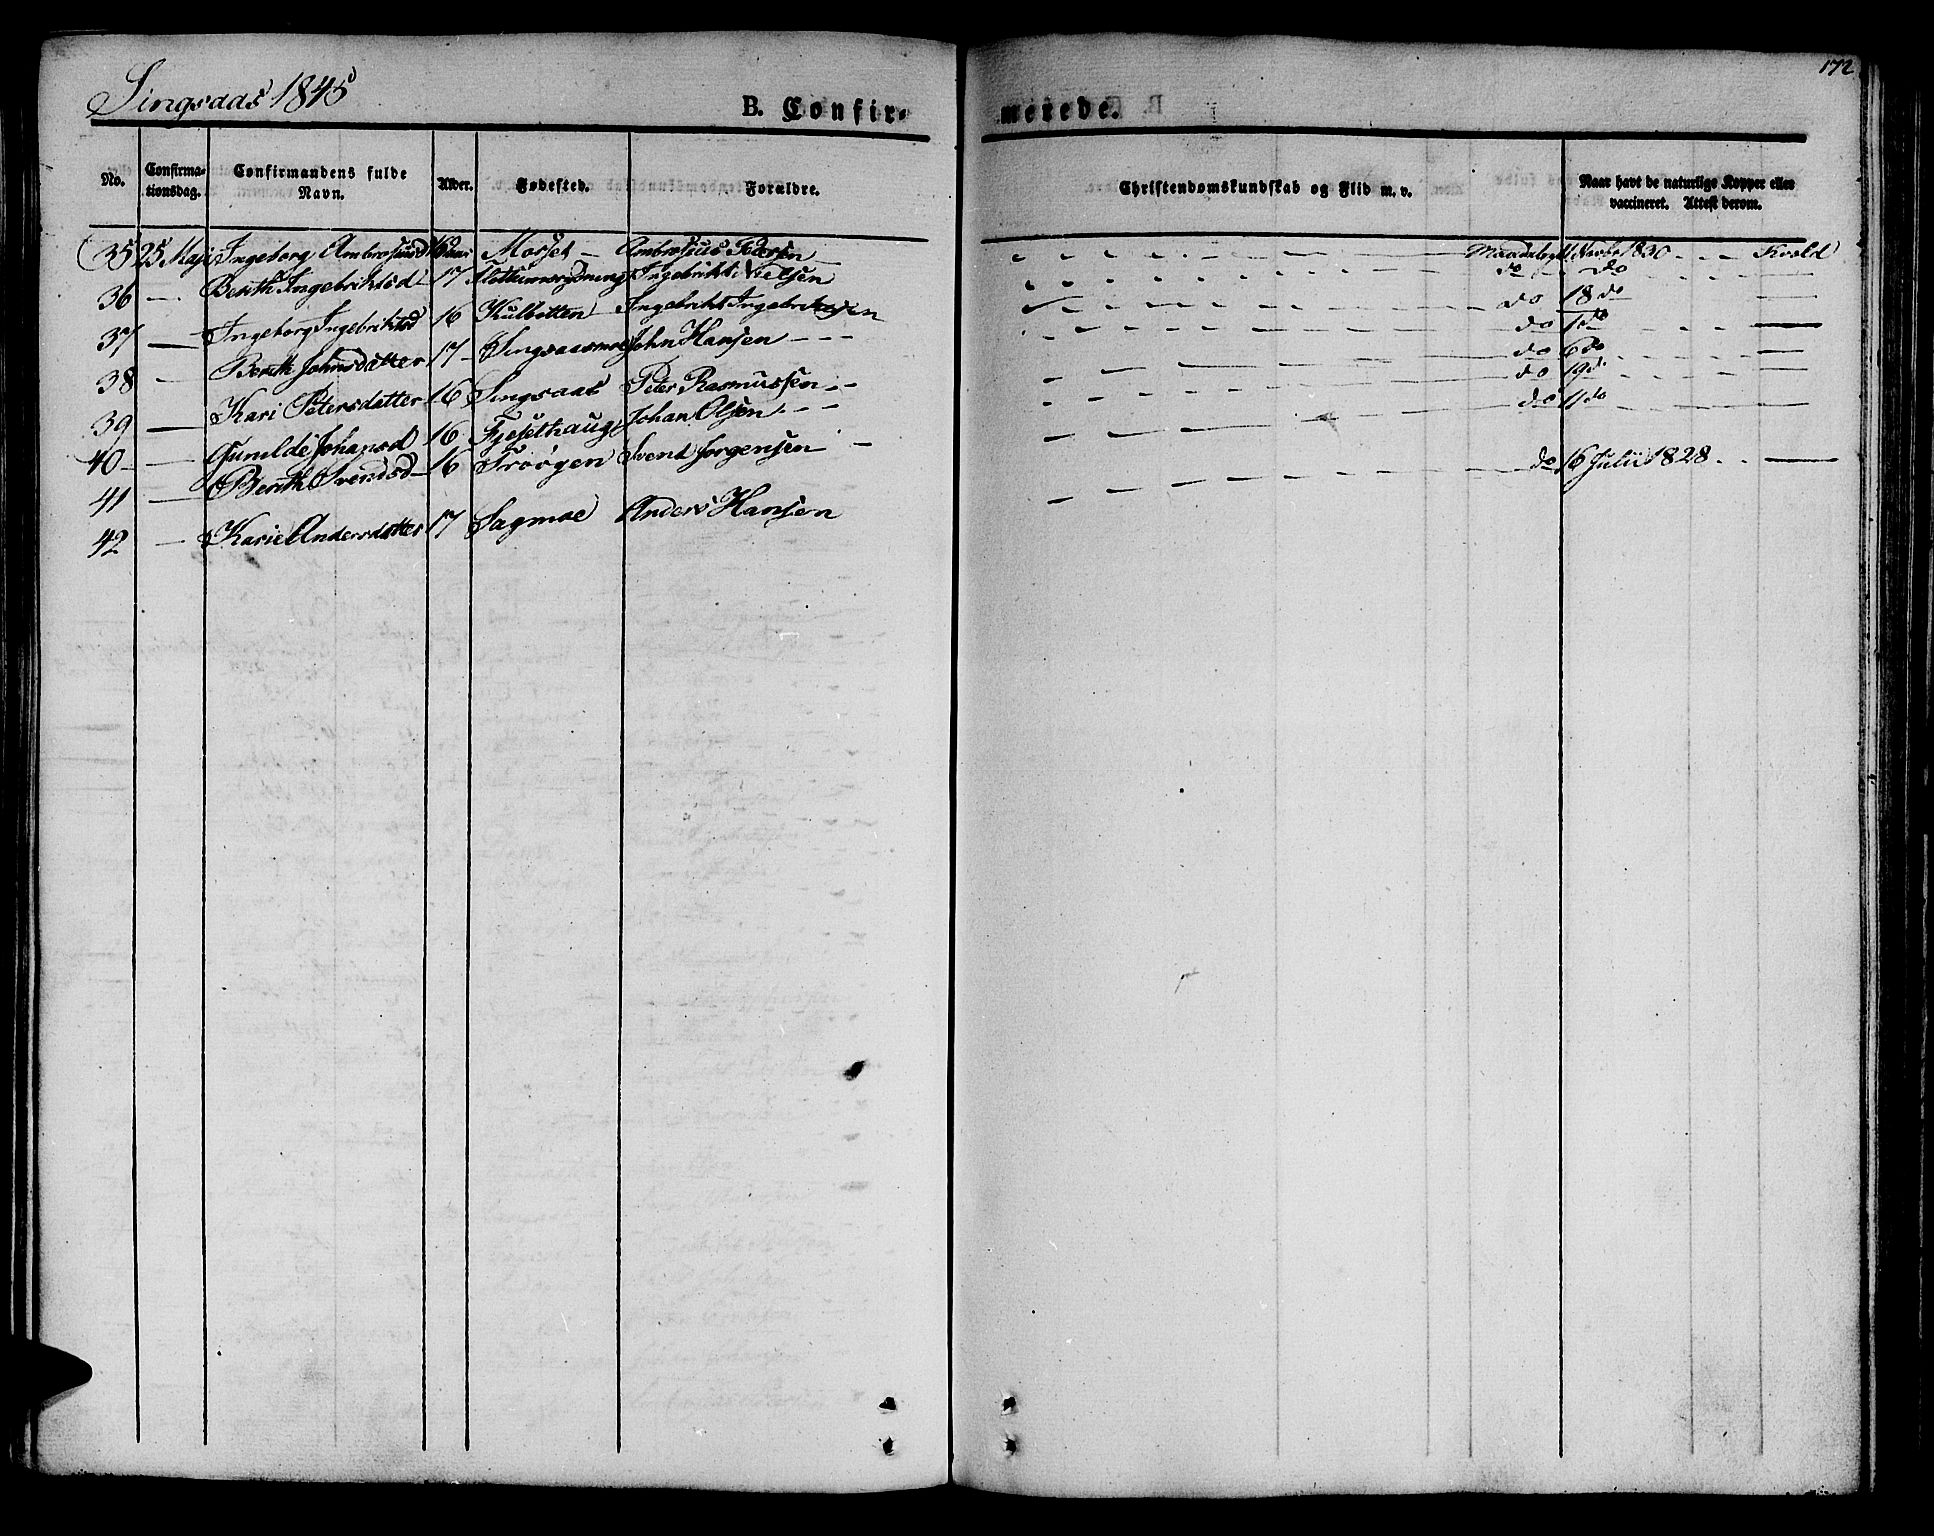 172
Singsaas 1845
B. Confir-
merede.
No.
Confirma-
tionsdag.
Confirmandens fulde
Navn.
Alder.
Fødested.
Forældre.
Christendomskundskab og Flid m. v.
Naar havt de naturlige Kopper eller
vaccineret. Attest derom.
35 25 Maji Ingeborg Ambrosiusd 16 Morset Ambrosius 1830 Kvold
36 Berith Ingebriktsd 17 Ingebrikt Nielsen do do
37 Ingeborg Ingebriktsd 16 Kulbitten Ingebrikt Ingebriktsen do 18 do
38 Berith Johnsdatter 17 Singsaasmoe John Hansen do 1 do
39 Kari Petersdatter 16 Singsaas Peter Rasmussen do 6 do
40 Gunilde Johansd 16 Fjeselhaug Johan Olsen do 19 do
41 Berith Svendsd 16 Troøgen Svend Jørgensen do 11 do
42 Karie Andersdatter 17 Sagmoe Anders Hansen do 16 Julii 1828